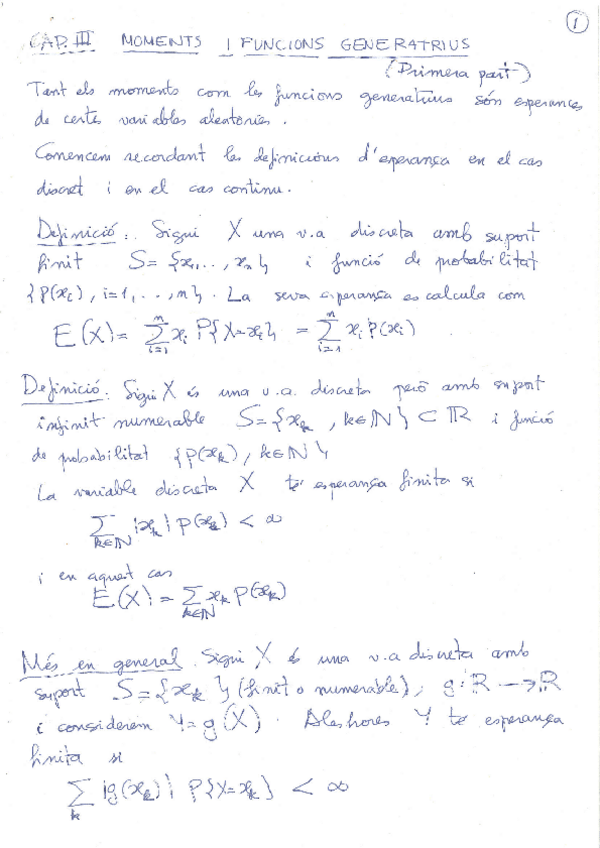 1
CAP. III MOMENTS I FUNCIONS GENERATRIUS
(Primera part)
Tant els moments com les funcions generatrius són esperances
de certes variables aleatòries.
Comencem recordant les definicions d'esperança en el cas
discret i en el cas continu.
Definició: Sigui X una v.a discreta amb suport
finit S = {x₁, .., xₙ} i funció de probabilitat
{p(xᵢ), i=1, . ., n}. La seva esperança es calcula com
E(X) = ∑ᵢ₌₁ⁿ xᵢ P{X=xᵢ} = ∑ᵢ₌₁ⁿ xᵢ p(xᵢ)
Definició: Sigui X és una v.a. discreta però amb suport
infinit numerable S = {xₖ, k∈ℕ} ⊂ ℝ i funció
de probabilitat {p(xₖ), k∈ℕ}
La variable discreta X té esperança finita si
∑_{k∈ℕ} |xₖ| p(xₖ) < ∞
i en aquest cas
E(X) = ∑_{k∈ℕ} xₖ p(xₖ)
Més en general. Sigui X és una v.a discreta amb
suport S = {xₖ} (finit o numerable), g: ℝ → ℝ
i considerem Y = g(X). Aleshores Y té esperança
finita si
∑ₖ |g(xₖ)| P{X=xₖ} < ∞